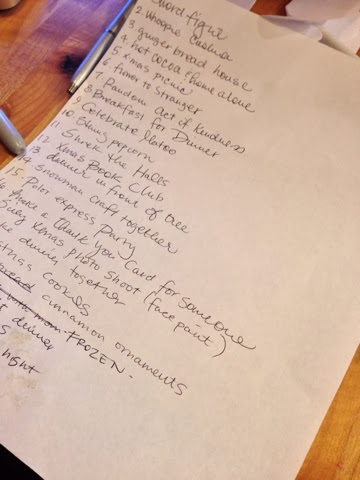 word fight
2. Whoopie Cushion
3 gingerbread house
4 hot cocoa / home alone
5 xmas picnic
6 flower to stranger
7 Random act of Kindness
8 Breakfast for Dinner
9 Celebrate Matteo
10 String popcorn
11 Shrek the Halls
12 Xmas Book Club
13 dinner in front of tree
14 Snowman craft together
15. Polar express Party
6 Make a Thank You Card for someone
Silly Xmas Photo Shoot (face paint)
dinner together
cookies
cinnamon ornaments
with mom - FROZEN.
dinner
night